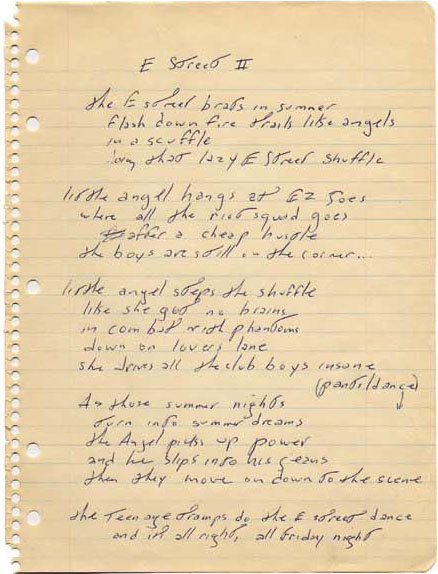 E Street II
the E street brats in summer
flash down fire trails like angels
in a scuffle
doing that lazy E Street Shuffle
little angel hangs at EZ Joes
where all the riot squad goes
after a cheap hustle
the boys are still on the corner...
little angel steps the shuffle
like she got no brains
in combat with phantoms
down on lovers lane
she drives all the club boys insane
(dance)
As those summer nights
turn into summer dreams
the Angel picks up power
and he slips into his jeans
then they move on down to the scene
the Teenage tramps do the E street dance
and it's all right, all friday night